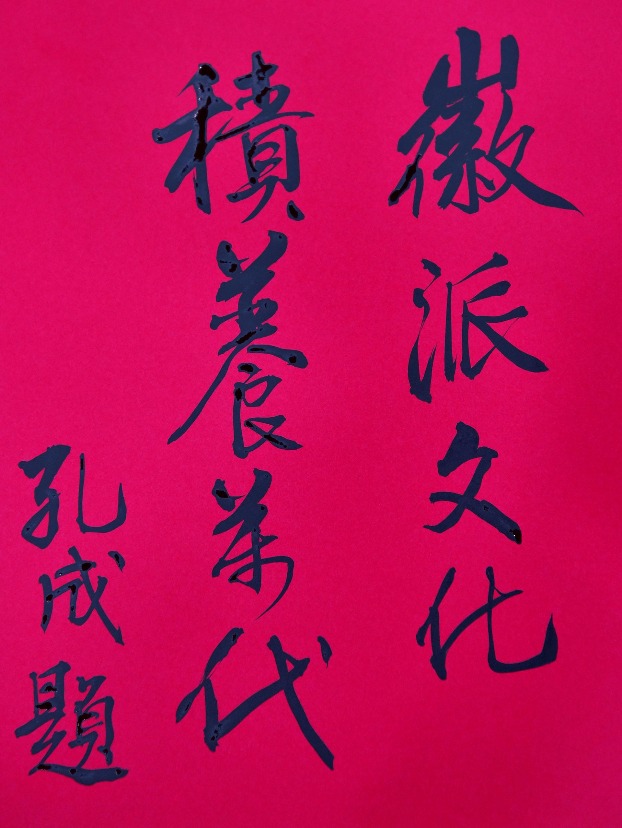 徽派文化
積養萬代
孔成題